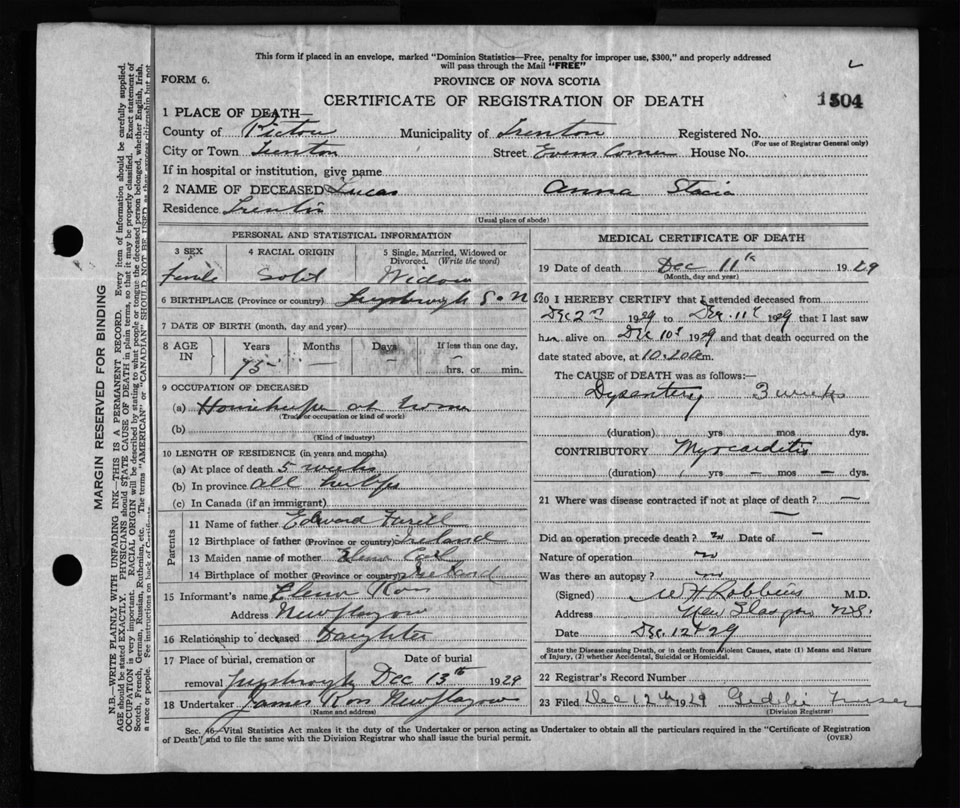 This form if placed in an envelope, marked "Dominion Statistics—Free, penalty for improper use, $300," and properly addressed
will pass through the Mail "FREE"
FORM 6.
PROVINCE OF NOVA SCOTIA
CERTIFICATE OF REGISTRATION OF DEATH
1504
1 PLACE OF DEATH—
County of Pictou Municipality of Trenton Registered No.
(For use of Registrar General only)
City or Town Trenton Street Evens Corner House No.
If in hospital or institution, give name
2 NAME OF DECEASED Lucas Anna Stacia
Residence Trenton
(Usual place of abode)
PERSONAL AND STATISTICAL INFORMATION
3 SEX 4 RACIAL ORIGIN 5 Single, Married, Widowed or Divorced. (Write the word)
Female Widow
6 BIRTHPLACE (Province or country)
7 DATE OF BIRTH (month, day and year)
8 AGE IN Years Months Days If less than one day,
75 — — hrs. or min.
9 OCCUPATION OF DECEASED
(a) Housekeeper at home
(Trade or occupation or kind of work)
(b)
(Kind of industry)
10 LENGTH OF RESIDENCE (in years and months)
(a) At place of death 5 weeks
(b) In province all her life
(c) In Canada (if an immigrant)
Parents
11 Name of father Edward
12 Birthplace of father (Province or country) Ireland
13 Maiden name of mother
14 Birthplace of mother (Province or country) Ireland
15 Informant's name Ross
Address New Glasgow
16 Relationship to deceased Daughter
17 Place of burial, cremation or removal Date of burial
Dec 13th 1929
18 Undertaker James Ross New Glasgow
(Name and address)
MEDICAL CERTIFICATE OF DEATH
19 Date of death Dec 11th 1929
(Month, day and year)
20 I HEREBY CERTIFY that I attended deceased from
Dec 2nd 1929 to Dec. 11th 1929 that I last saw
her alive on Dec 10th 1929 and that death occurred on the
date stated above, at 10.20 a m.
The CAUSE of DEATH was as follows:—
Dysentery 3 weeks
(duration) yrs mos dys.
CONTRIBUTORY Myocarditis
(duration) yrs — mos — dys.
21 Where was disease contracted if not at place of death? —
—
Did an operation precede death? no Date of —
Nature of operation
Was there an autopsy? no
(Signed) W H Robbins M.D.
Address New Glasgow N.S.
Date Dec. 12th 29
State the Disease causing Death, or in death from Violent Causes, state (1) Means and Nature
of Injury, (2) whether Accidental, Suicidal or Homicidal.
22 Registrar's Record Number
23 Filed Dec 12th 1929 Fraser
(Division Registrar)
Sec. 46—Vital Statistics Act makes it the duty of the Undertaker or person acting as Undertaker to obtain all the particulars required in the "Certificate of Registration
of Death" and to file the same with the Division Registrar who shall issue the burial permit.
(OVER)
MARGIN RESERVED FOR BINDING
N.B.—WRITE PLAINLY WITH UNFADING INK—THIS IS A PERMANENT RECORD. Every item of information should be carefully supplied.
AGE should be stated EXACTLY. PHYSICIANS should STATE CAUSE OF DEATH in plain terms, so that it may be properly classified. Exact statement of
OCCUPATION is very important. RACIAL ORIGIN will be described by stating to what people or tongue the deceased person belonged, whether English, Irish,
Scotch, French, German, Russian, Ruthenian, etc. The terms "AMERICAN" or "CANADIAN" SHOULD NOT BE USED, as they express citizenship but not
a race or people. See instructions on back of Certificate.